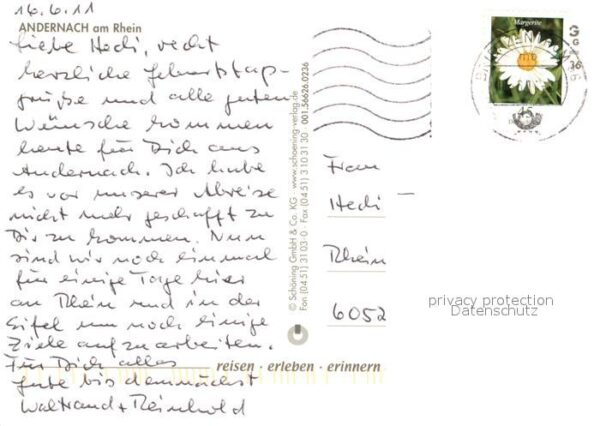 16.6.11
ANDERNACH am Rhein
Liebe Hedi, recht
herzliche Geburtstags-
grüße und alle guten
Wünsche kommen
heute für Dich aus
Andernach. Ich habe
es vor unserer Abreise
nicht mehr geschafft zu
Dir zu kommen. Nun
sind wir noch einmal
für einige Tage hier
am Rhein und in der
Eifel um noch einige
Ziele aufzuarbeiten.
Für Dich alles
Gute bis demnächst
Waltraud + Reinhold
reisen · erleben · erinnern
© Schöning GmbH & Co. KG · www.schoening-verlag.de
Fon (04 51) 31 03-0 · Fax (04 51) 3 10 31 30 · 001.56626.0236
Margerite
45
BRIEFZENTRUM
Frau
Hedi
Rhein
6052
privacy protection
Datenschutz